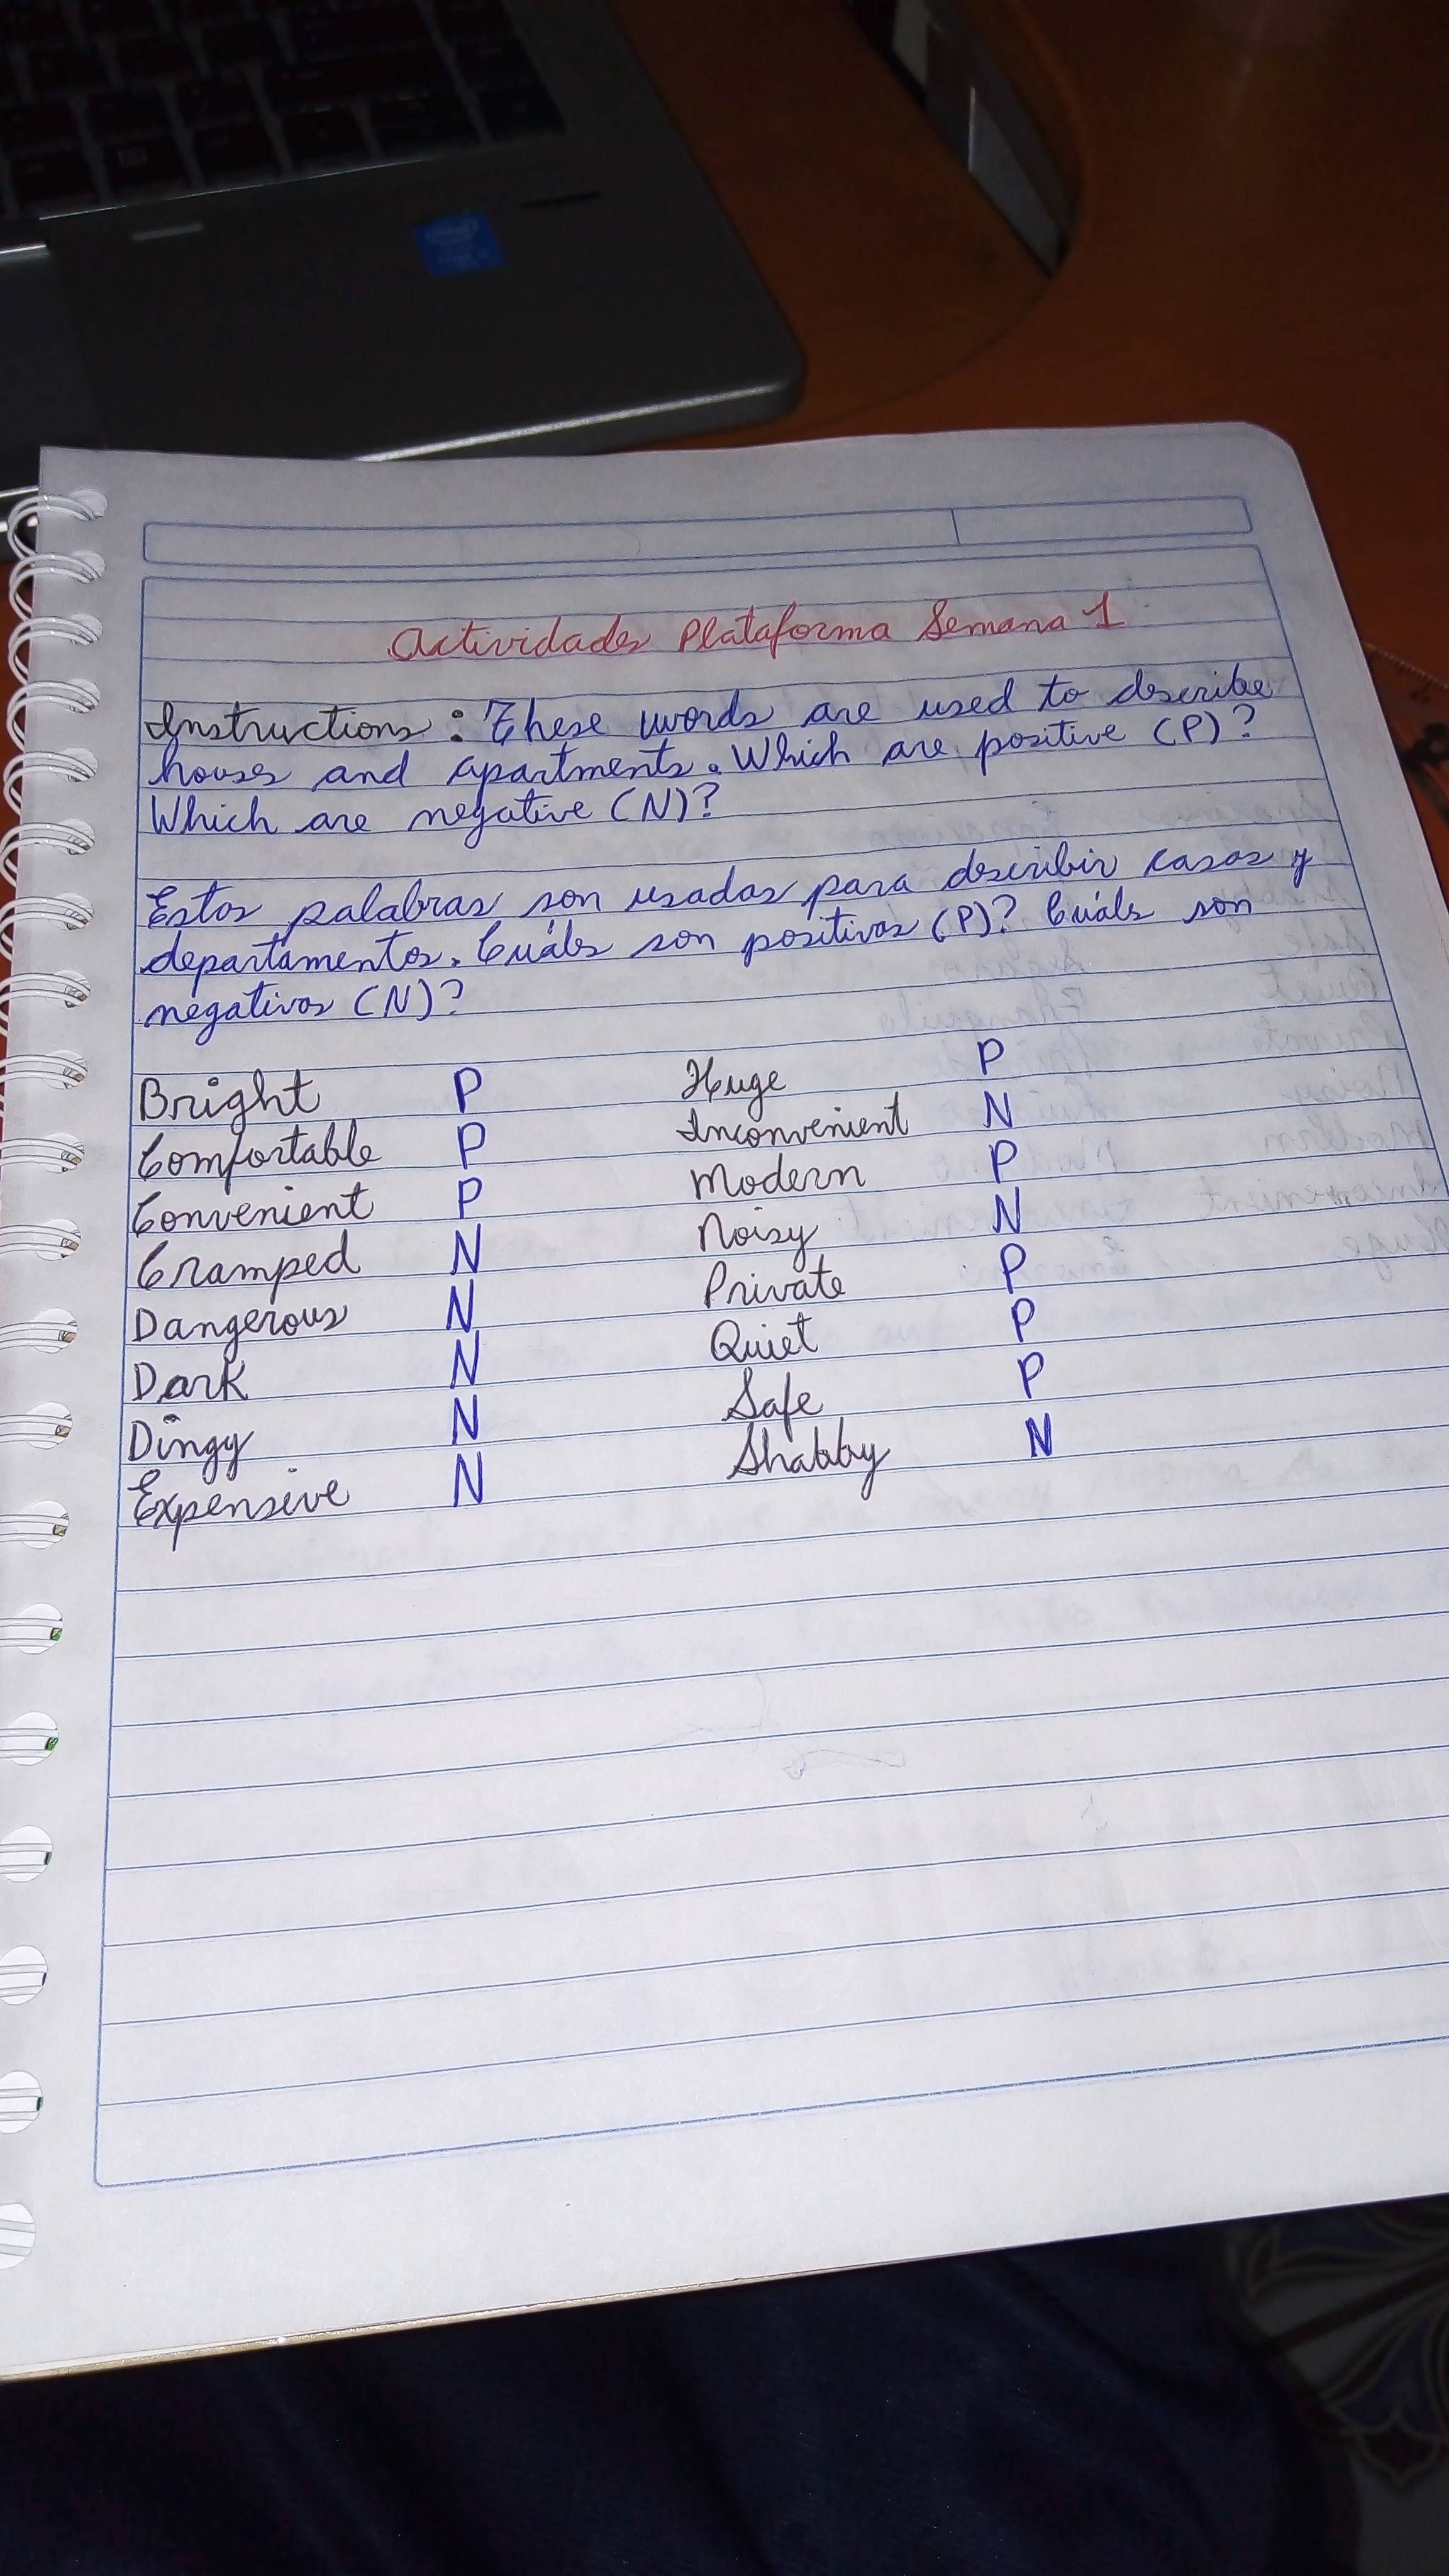 intel
Actividades Plataforma Semana 1
Instructions: These words are used to describe
houses and apartments. Which are positive (P)?
Which are negative (N)?
Estas palabras son usadas para describir casas y
departamentos. Cuáles son positivas (P)? Cuáles son
negativas (N)?
Bright P Huge P
Comfortable P Inconvenient N
Convenient P Modern P
Cramped N Noisy N
Dangerous N Private P
Dark N Quiet P
Dingy N Safe P
Expensive N Shabby N